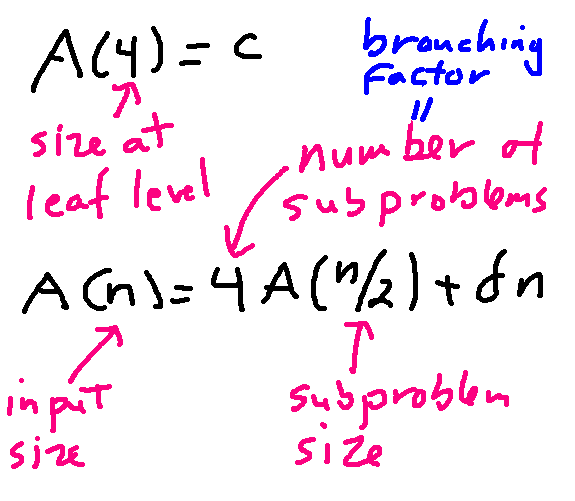 A(4) = c
branching
factor
=
size at
leaf level
number of
subproblems
A(n) = 4 A(n/2) + dn
input
size
subproblem
size